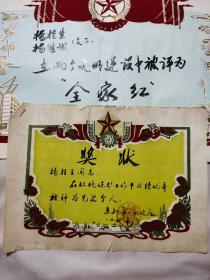 杨桂生
杨继斌（父子）
在两个文明建设中被评为
“全家红”
奖状
杨桂生同志
在环境保护工作中成绩优异
被评为先进个人